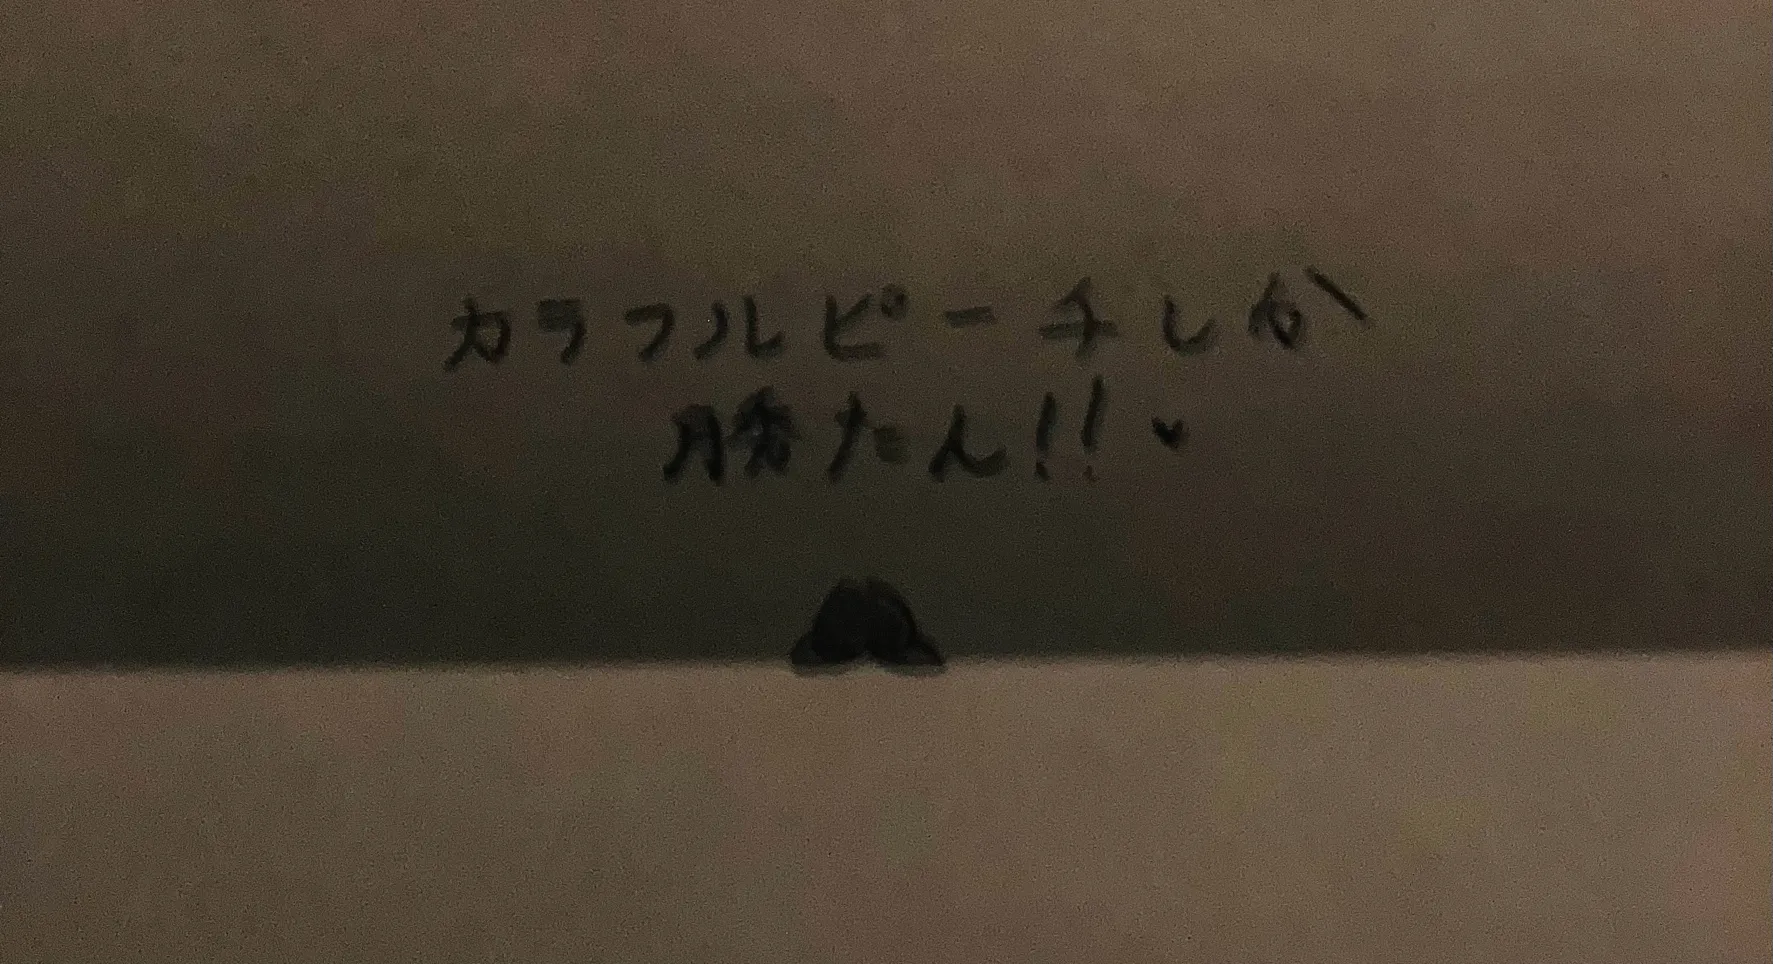 カラフルピーチしか
勝たん!!♥